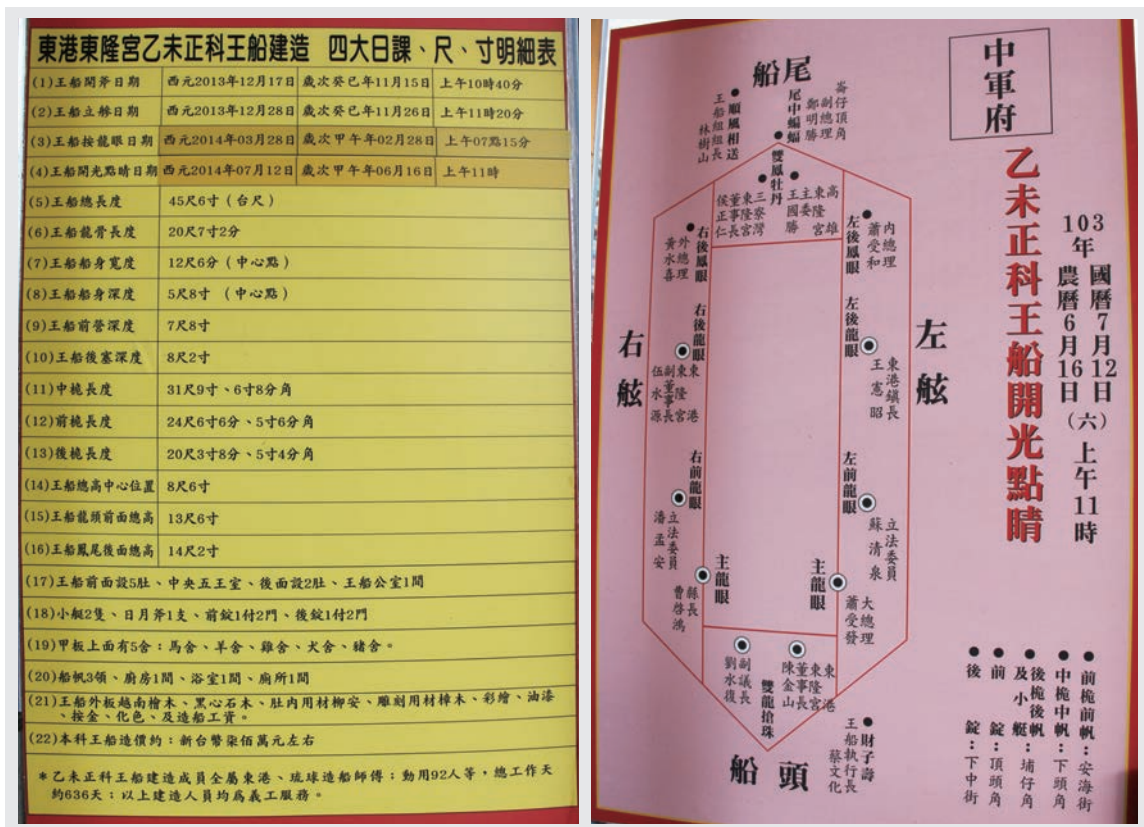 東港東隆宮乙未正科王船建造 四大日課、尺、寸明細表
(1)王船開斧日期 西元2013年12月17日 歲次癸巳年11月15日 上午10時40分
(2)王船立桅日期 西元2013年12月28日 歲次癸巳年11月26日 上午11時20分
(3)王船按龍眼日期 西元2014年03月28日 歲次甲午年02月28日 上午07點15分
(4)王船開光點睛日期 西元2014年07月12日 歲次甲午年06月16日 上午11時
(5)王船總長度 45尺6寸(台尺)
(6)王船龍骨長度 20尺7寸2分
(7)王船船身寬度 12尺6分(中心點)
(8)王船船身深度 5尺8寸 (中心點)
(9)王船前營深度 7尺8寸
(10)王船後塞深度 8尺2寸
(11)中桅長度 31尺9寸、6寸8分角
(12)前桅長度 24尺6寸6分、5寸6分角
(13)後桅長度 20尺3寸8分、5寸4分角
(14)王船總高中心位置 8尺6寸
(15)王船龍頭前面總高 13尺6寸
(16)王船鳳尾後面總高 14尺2寸
(17)王船前面設5肚、中央五王室、後面設2肚、王船公室1間
(18)小艇2隻、日月斧1支、前錠1付2門、後錠1付2門
(19)甲板上面有5舍:馬舍、羊舍、雞舍、犬舍、豬舍。
(20)船帆3領、廚房1間、浴室1間、廁所1間
(21)王船外板越南檜木、黑心石木、肚內用材柳安、雕刻用材樟木、彩繪、油漆
、按金、化色、及造船工資。
(22)本科王船造價約:新台幣柒佰萬元左右
*乙未正科王船建造成員全屬東港、琉球造船師傅:動用92人等,總工作天
約636天:以上建造人員均為義工服務。
中軍府
103年 國曆7月12日
農曆6月16日
(六) 上午11時
乙未正科王船開光點睛
船尾
崙仔頂角
副總理
鄭明勝
尾中蝙蝠
順風相送
王船組組長
林樹山
雙鳳牡丹
高雄
東隆宮
主委
王國勝
三寮灣
東隆宮
董事長
侯正仁
左後鳳眼
內總理
蕭受和
右後鳳眼
外總理
黃水喜
左舷
右舷
左後龍眼
東港鎮長
王憲昭
右後龍眼
東港
東隆宮
副董事長
伍水源
左前龍眼
立法委員
蘇清泉
右前龍眼
立法委員
潘孟安
主龍眼
大總理
蕭受發
主龍眼
縣長
曹啓鴻
東港
東隆宮
董事長
陳金山
副議長
劉水復
雙龍搶珠
財子壽
王船執行長
蔡文化
船頭
前桅前帆:安海街
中桅中帆:下頭角
後桅後帆
及小艇:埔仔角
前錠:頂頭角
後錠:下中街